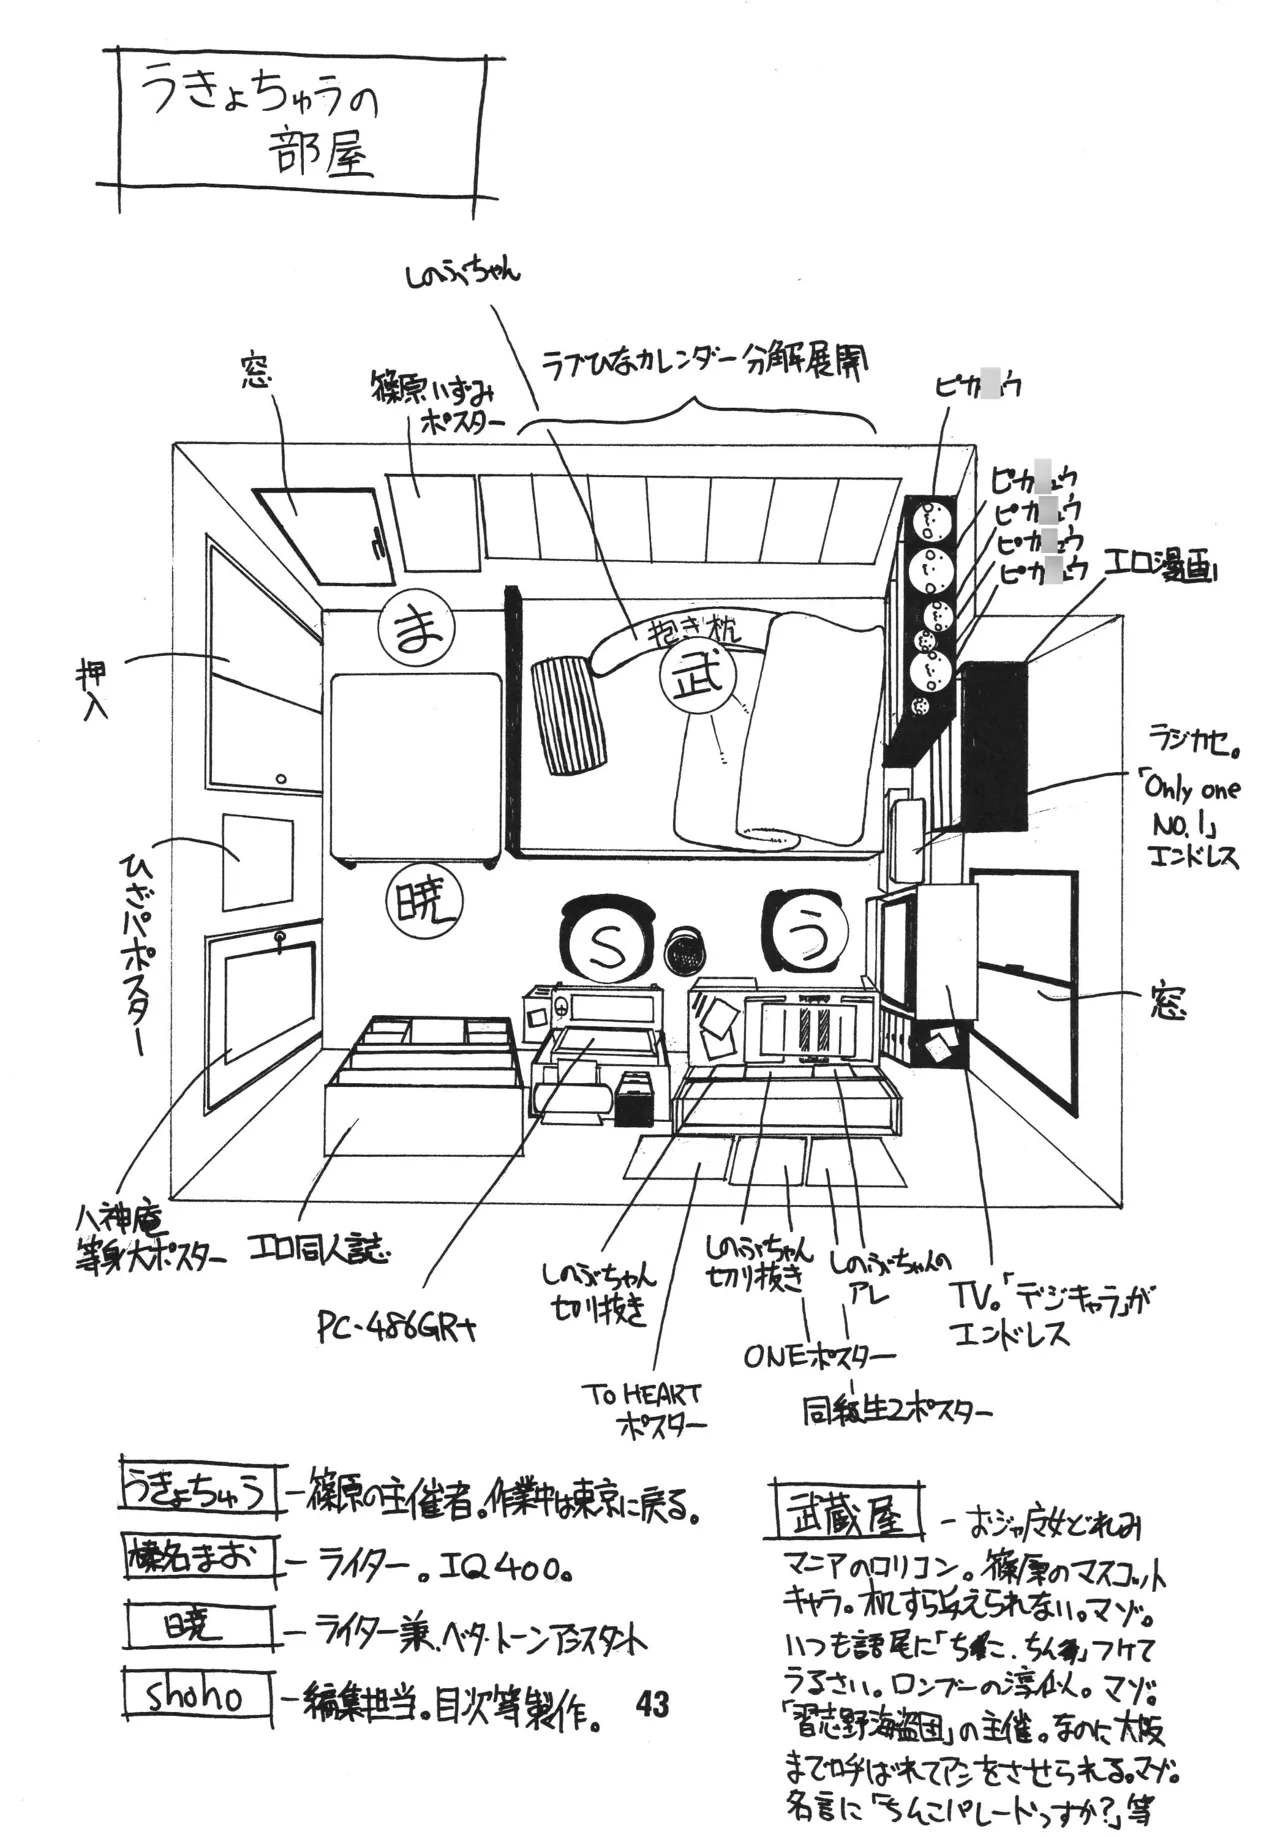 うきょちゅうの
部屋
しのぶちゃん
ラブひなカレンダー分解展開
窓
篠原いずみ
ポスター
ピカ ュウ
ピカ ュウ
ピカ ュウ
ピカ ュウ
ピカ ュウ
エロ漫画
ま
抱き枕
武
押入
ラジカセ。
「Only one
NO.1」
エンドレス
ひざパポスター
暁
S
う
窓
八神庵
等身大ポスター
エロ同人誌
PC-486GR+
しのぶちゃん
切り抜き
しのぶちゃん
切り抜き
しのぶちゃんの
アレ
TV。「デジキャラ」が
エンドレス
ONEポスター
To HEART
ポスター
同級生2ポスター
うきょちゅう - 篠原の主催者。作業中は東京に戻る。
榛名まお - ライター。IQ400。
暁 - ライター兼、ベタ・トーンアシスタント
shoho - 編集担当。目次等製作。
43
武蔵屋 - おジャ魔女どれみ
マニアのロリコン。篠原のマスコット
キャラ。机すら与えられない。マゾ。
いつも語尾に「 」つけて
うるさい。ロンブーの淳似。マゾ。
「習志野海盗団」の主催。なのに大阪
まで呼ばれてアシをさせられる。マゾ。
名言に「ちんこパレードっすか?」等